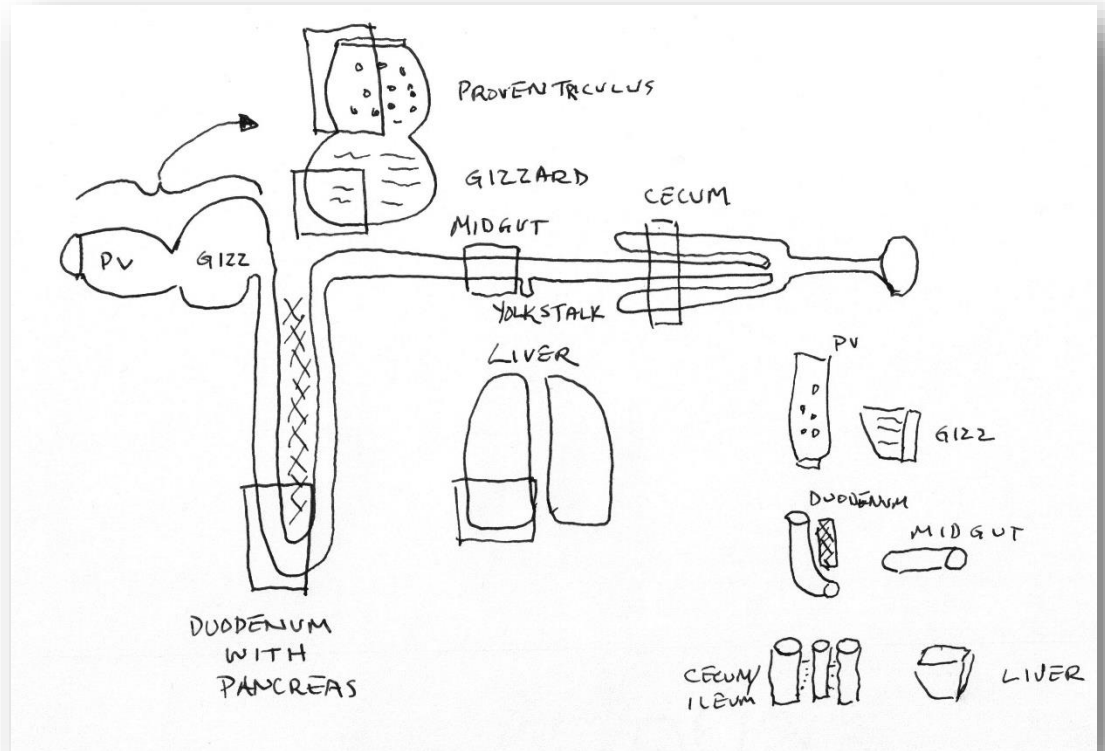 PROVENTRICULUS
GIZZARD
CECUM
MIDGUT
PV
GIZZ
YOLKSTALK
LIVER
PV
GIZZ
DUODENUM
MIDGUT
DUODENUM
WITH
PANCREAS
CECUM/
ILEUM
LIVER